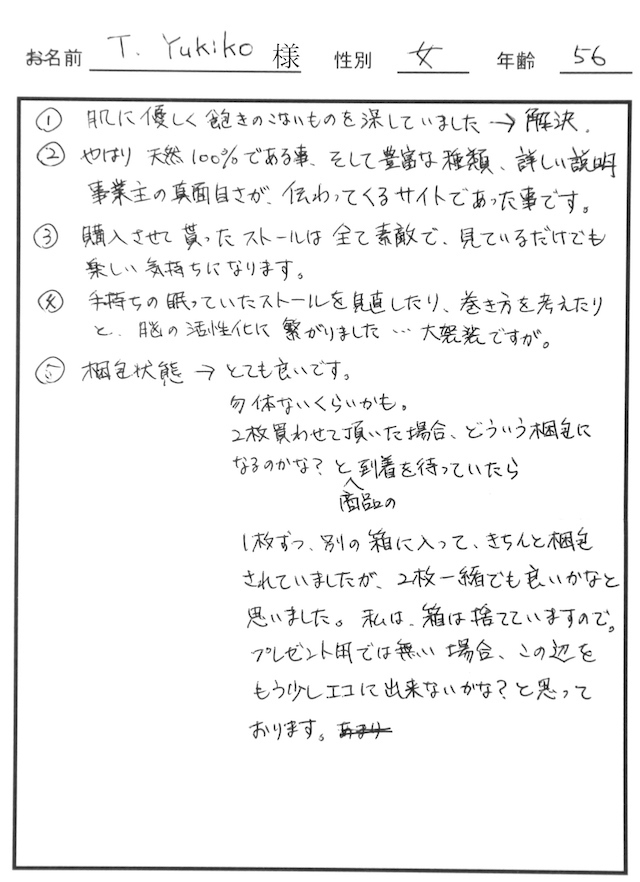 お名前 T. Yukiko 様 性別 女 年齢 56
① 肌に優しく飽きのこないものを深していました→解決.
② やはり 天然100%である事、そして豊富な種類、詳しい説明
事業主の真面目さが、伝わってくるサイトであった事です。
③ 購入させて貰ったストールは全て素敵で、見ているだけでも
楽しい気持ちになります。
④ 手持ちの眠っていたストールを見直したり、巻き方を考えたり
と、脳の活性化に繋がりました…大袈裟ですが。
⑤ 梱包状態→とても良いです。
勿体ないくらいかも。
2枚買わせて頂いた場合、どういう梱包に
なるのかな?と到着を待っていたら
商品の
1枚ずつ、別の箱に入って、きちんと梱包
されていましたが、2枚一緒でも良いかなと
思いました。私は、箱は捨てていますので。
プレゼント用では無い場合、この辺を
もう少しエコに出来ないかな?と思って
おります。あまり